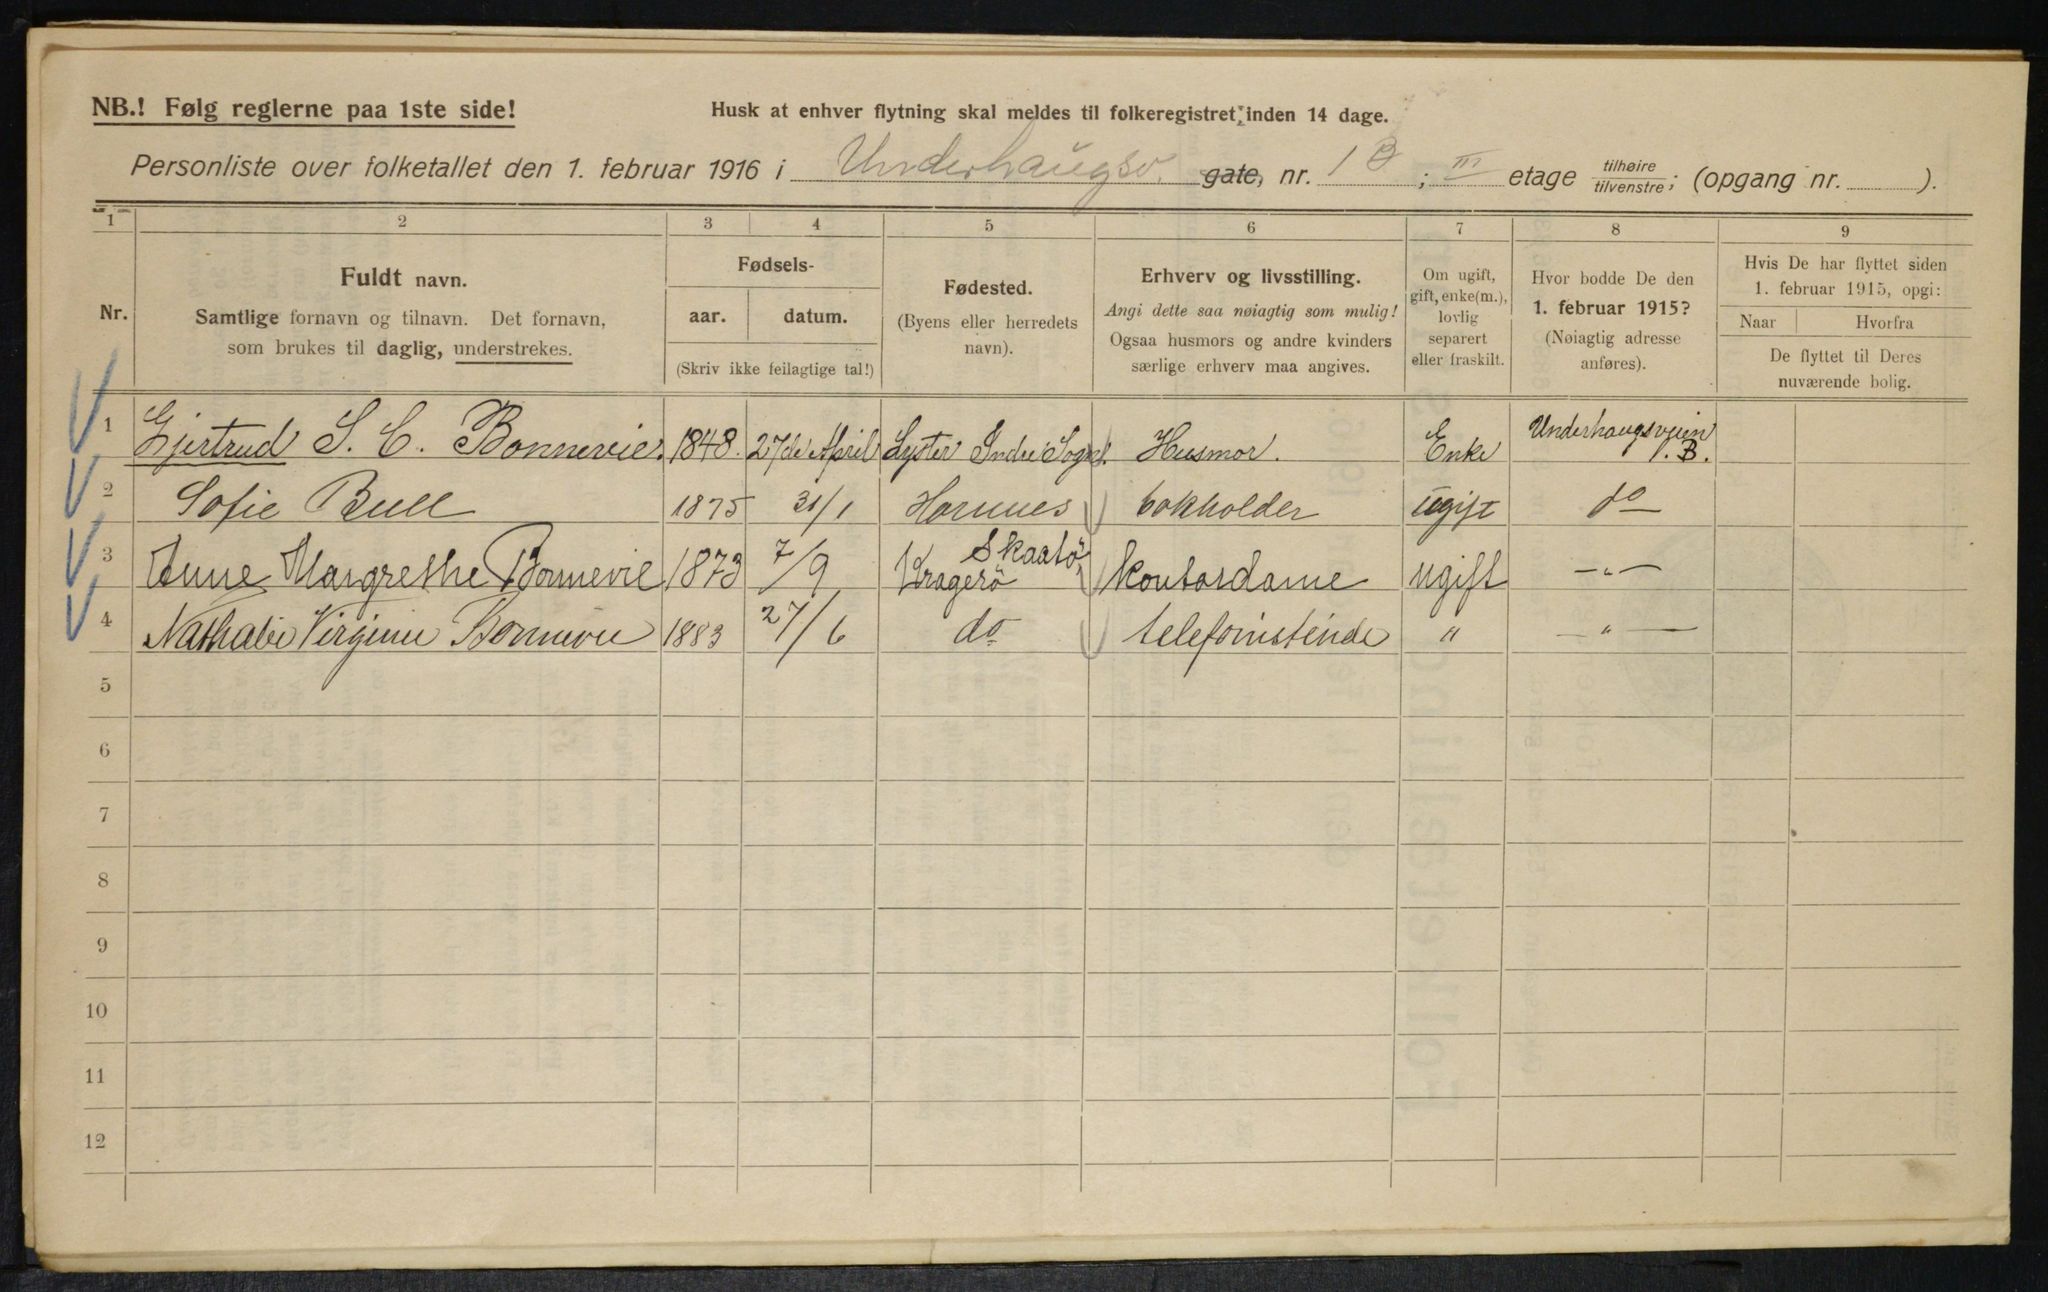 NB.! Følg reglerne paa 1ste side!
Husk at enhver flytning skal meldes til folkeregistret inden 14 dage.
Personliste over folketallet den 1. februar 1916 i Underhaugsv. gate, nr. 1 B ; III etage tilhøire/tilvenstre; (opgang nr. ).
1 2 3 4 5 6 7 8 9
Nr.
Fuldt navn.
Samtlige fornavn og tilnavn. Det fornavn,
som brukes til daglig, understrekes.
Fødsels-
aar. datum.
(Skriv ikke feilagtige tal!)
Fødested.
(Byens eller herredets
navn).
Erhverv og livsstilling.
Angi dette saa nøiagtig som mulig!
Ogsaa husmors og andre kvinders
særlige erhverv maa angives.
Om ugift,
gift, enke(m.),
lovlig
separert
eller fraskilt.
Hvor bodde De den
1. februar 1915?
(Nøiagtig adresse
anføres).
Hvis De har flyttet siden
1. februar 1915, opgi:
Naar Hvorfra
De flyttet til Deres
nuværende bolig.
1 Gjertrud S. C. Bonnevie. 1848. 27de April Lyster Indre Sogn. Husmor. Enke Underhaugsveien 1. B.
2 Sofie Bull 1875 31/1 Hornnes bokholder ugift do
3 Anne Margrethe Bonnevie 1873 7/9 Skaatö, Kragerö kontordame ugift —"—
4 Nathalie Virginie Bonnevie 1883 27/6 do telefonistinde " —"—
5
6
7
8
9
10
11
12